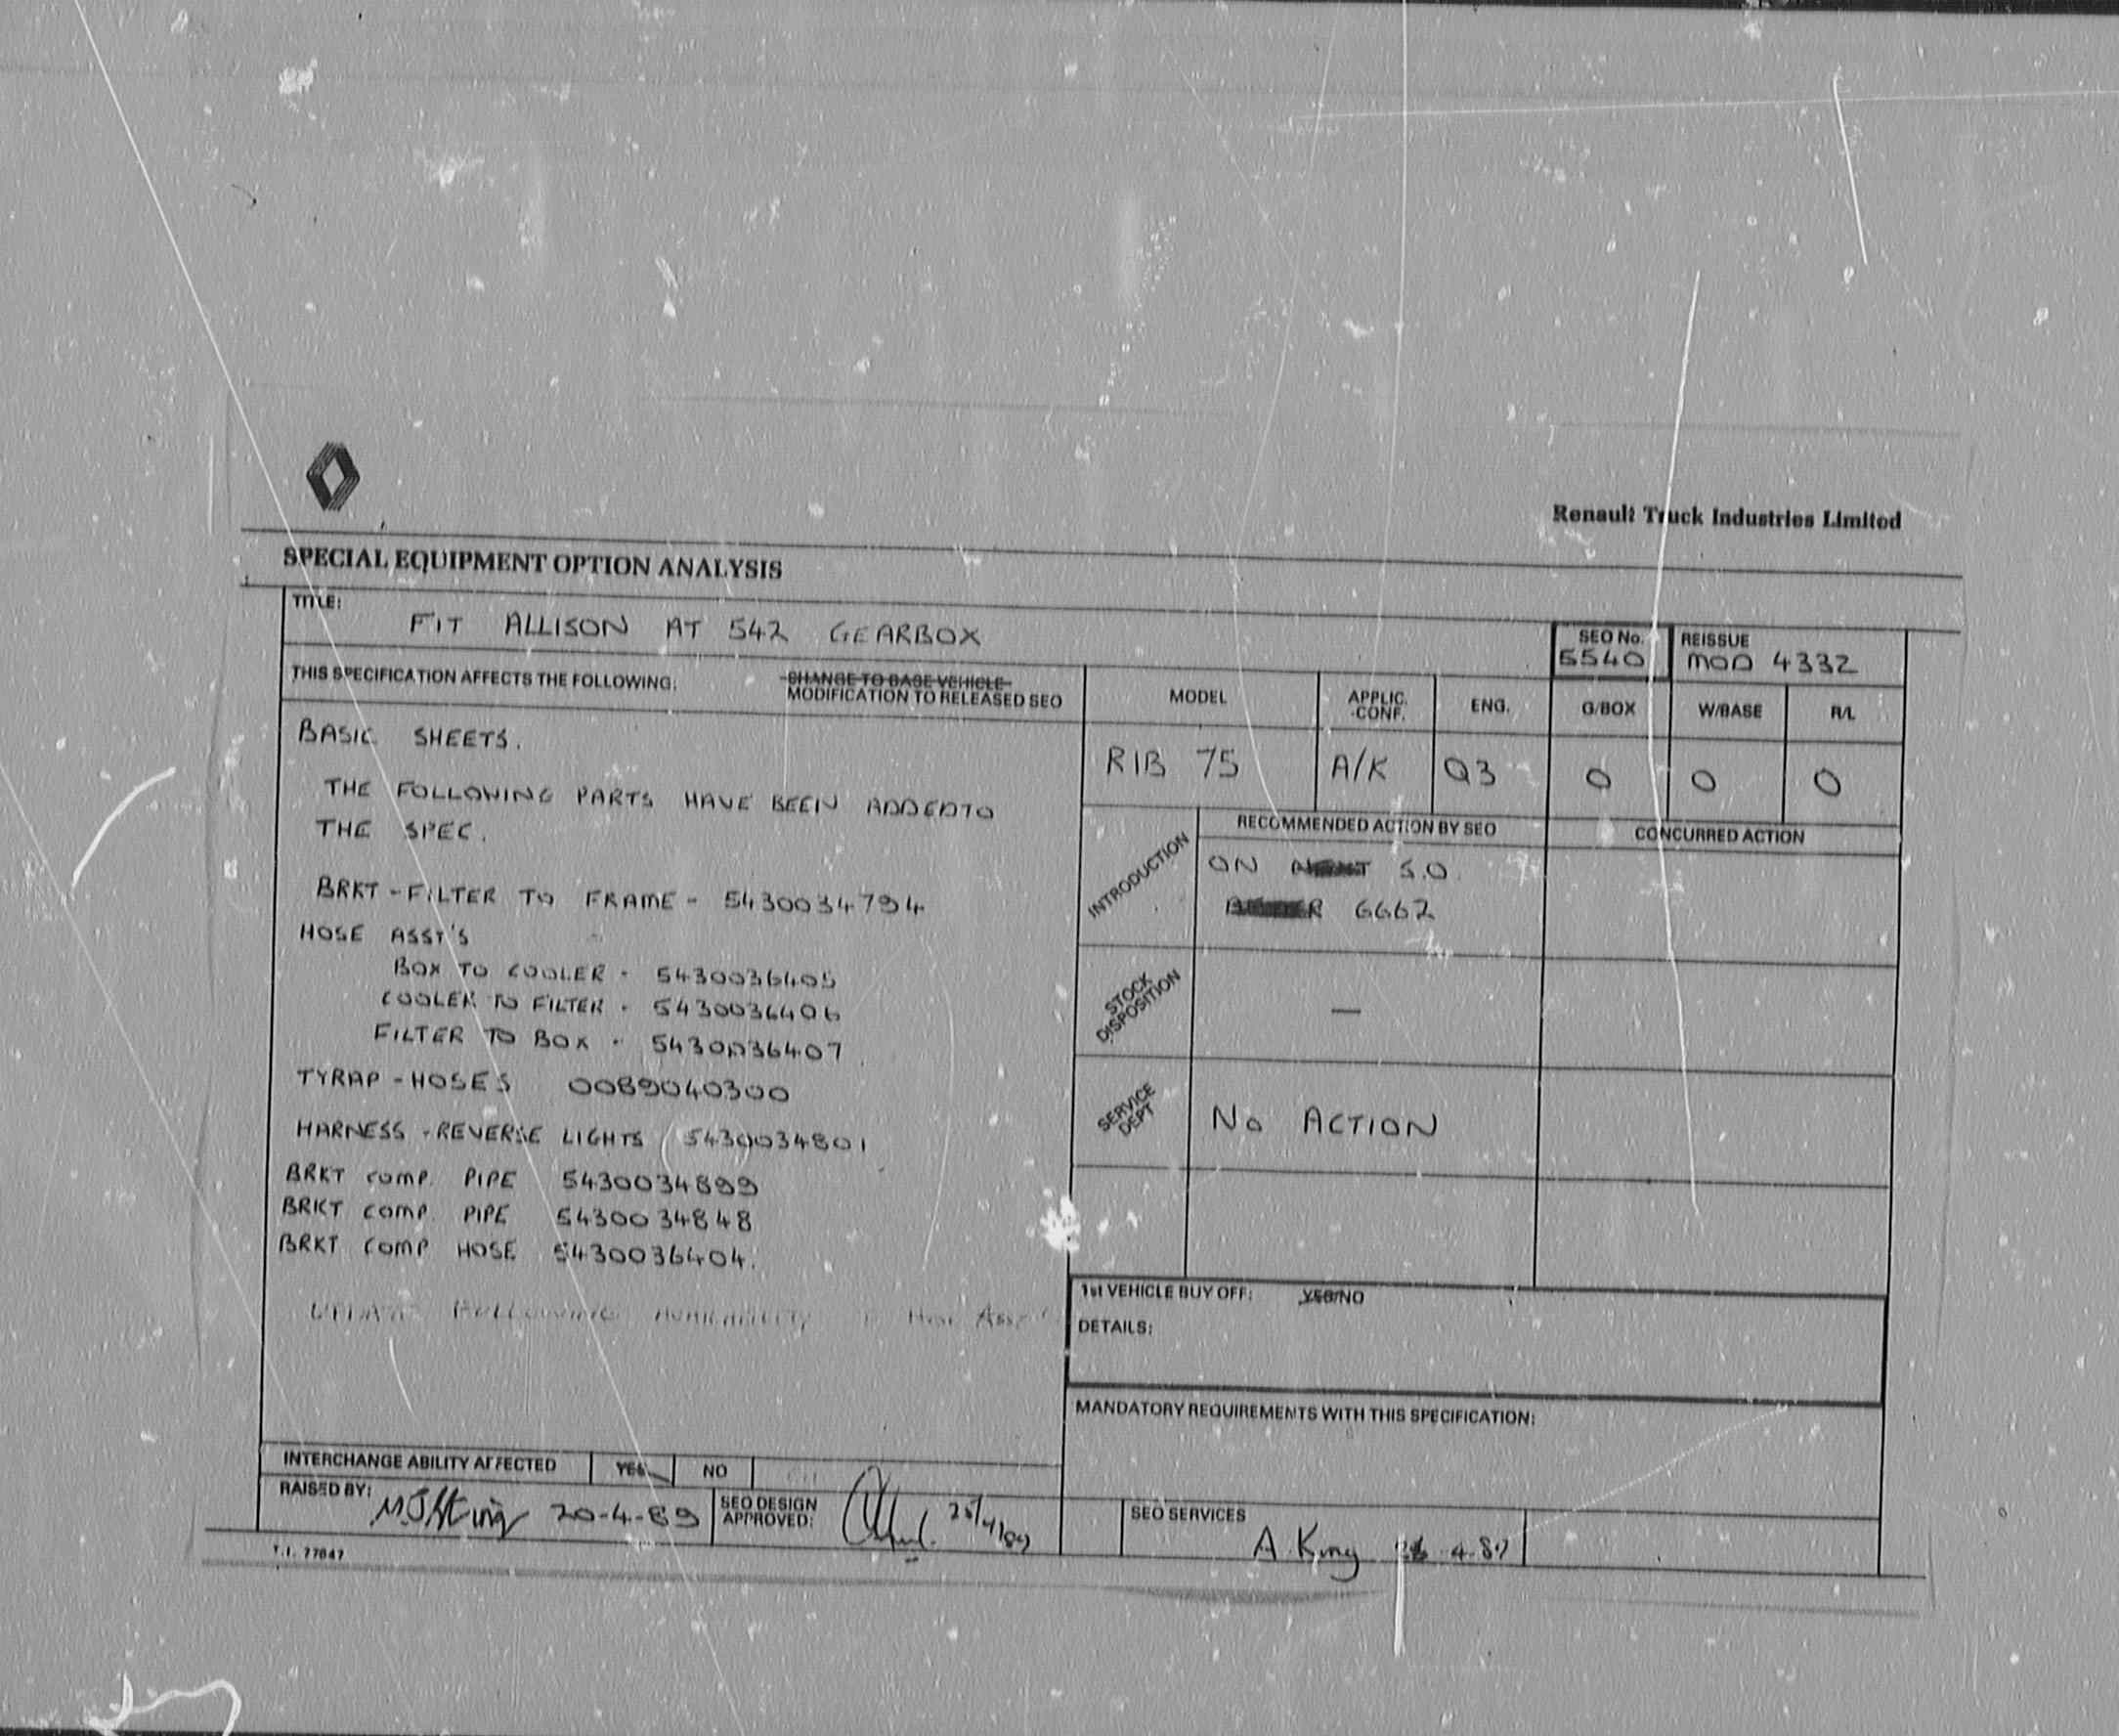 Renault Truck Industries Limited
SPECIAL EQUIPMENT OPTION ANALYSIS
TITLE:
FIT ALLISON AT 542 GEARBOX
SEO No.
5540
REISSUE
MOD 4332
THIS SPECIFICATION AFFECTS THE FOLLOWING:
CHANGE TO BASE VEHICLE
MODIFICATION TO RELEASED SEO
MODEL
APPLIC.
CONF.
ENG.
G/BOX
W/BASE
R/L
RIB 75
A/K
Q3
0
0
0
BASIC SHEETS.
THE FOLLOWING PARTS HAVE BEEN ADDED TO
THE SPEC.
BRKT - FILTER TO FRAME - 5430034794
HOSE ASSY'S
BOX TO COOLER - 5430036405
COOLER TO FILTER - 5430036406
FILTER TO BOX - 5430036407
TYRAP - HOSES 0089040300
HARNESS - REVERSE LIGHTS 5430034801
BRKT COMP. PIPE 5430034899
BRKT COMP. PIPE 5430034848
BRKT COMP HOSE 5430036404.
RECOMMENDED ACTION BY SEO
CONCURRED ACTION
INTRODUCTION
ON S.O.
6662
STOCK
DISPOSITION
—
SERVICE
DEPT
No ACTION
1st VEHICLE BUY OFF: YES/NO
DETAILS:
MANDATORY REQUIREMENTS WITH THIS SPECIFICATION:
INTERCHANGE ABILITY AFFECTED
YES
NO
RAISED BY:
20-4-89
SEO DESIGN
APPROVED:
25/4/89
SEO SERVICES
A. King 4.89
T.I. 77847